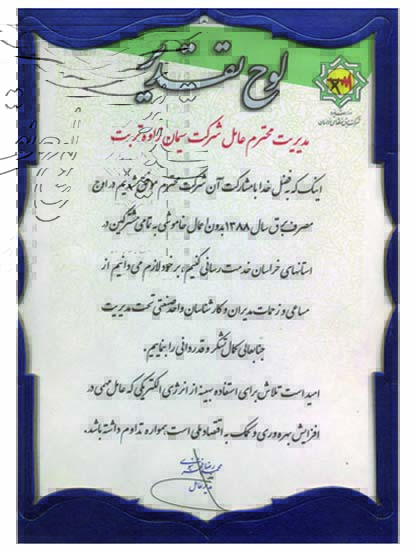 لوح تقدیر
مدیریت محترم عامل شرکت سیمان زاوه تربت
اینک که به فضل خدا با مشارکت آن شرکت محترم موفق شدیم در اوج
مصرف برق سال ۱۳۸۸ بدون اعمال خاموشی به تمامی مشترکین در
استانهای خراسان خدمت رسانی کنیم، بر خود لازم می دانیم از
مساعی و زحمات مدیران و کارشناسان واحد صنعتی تحت مدیریت
جنابعالی کمال تشکر و قدردانی را بنماییم.
امید است تلاش برای استفاده بهینه از انرژی الکتریکی که عامل مهمی در
افزایش بهره وری و کمک به اقتصاد ملی است همواره تداوم داشته باشد.
مدیر عامل